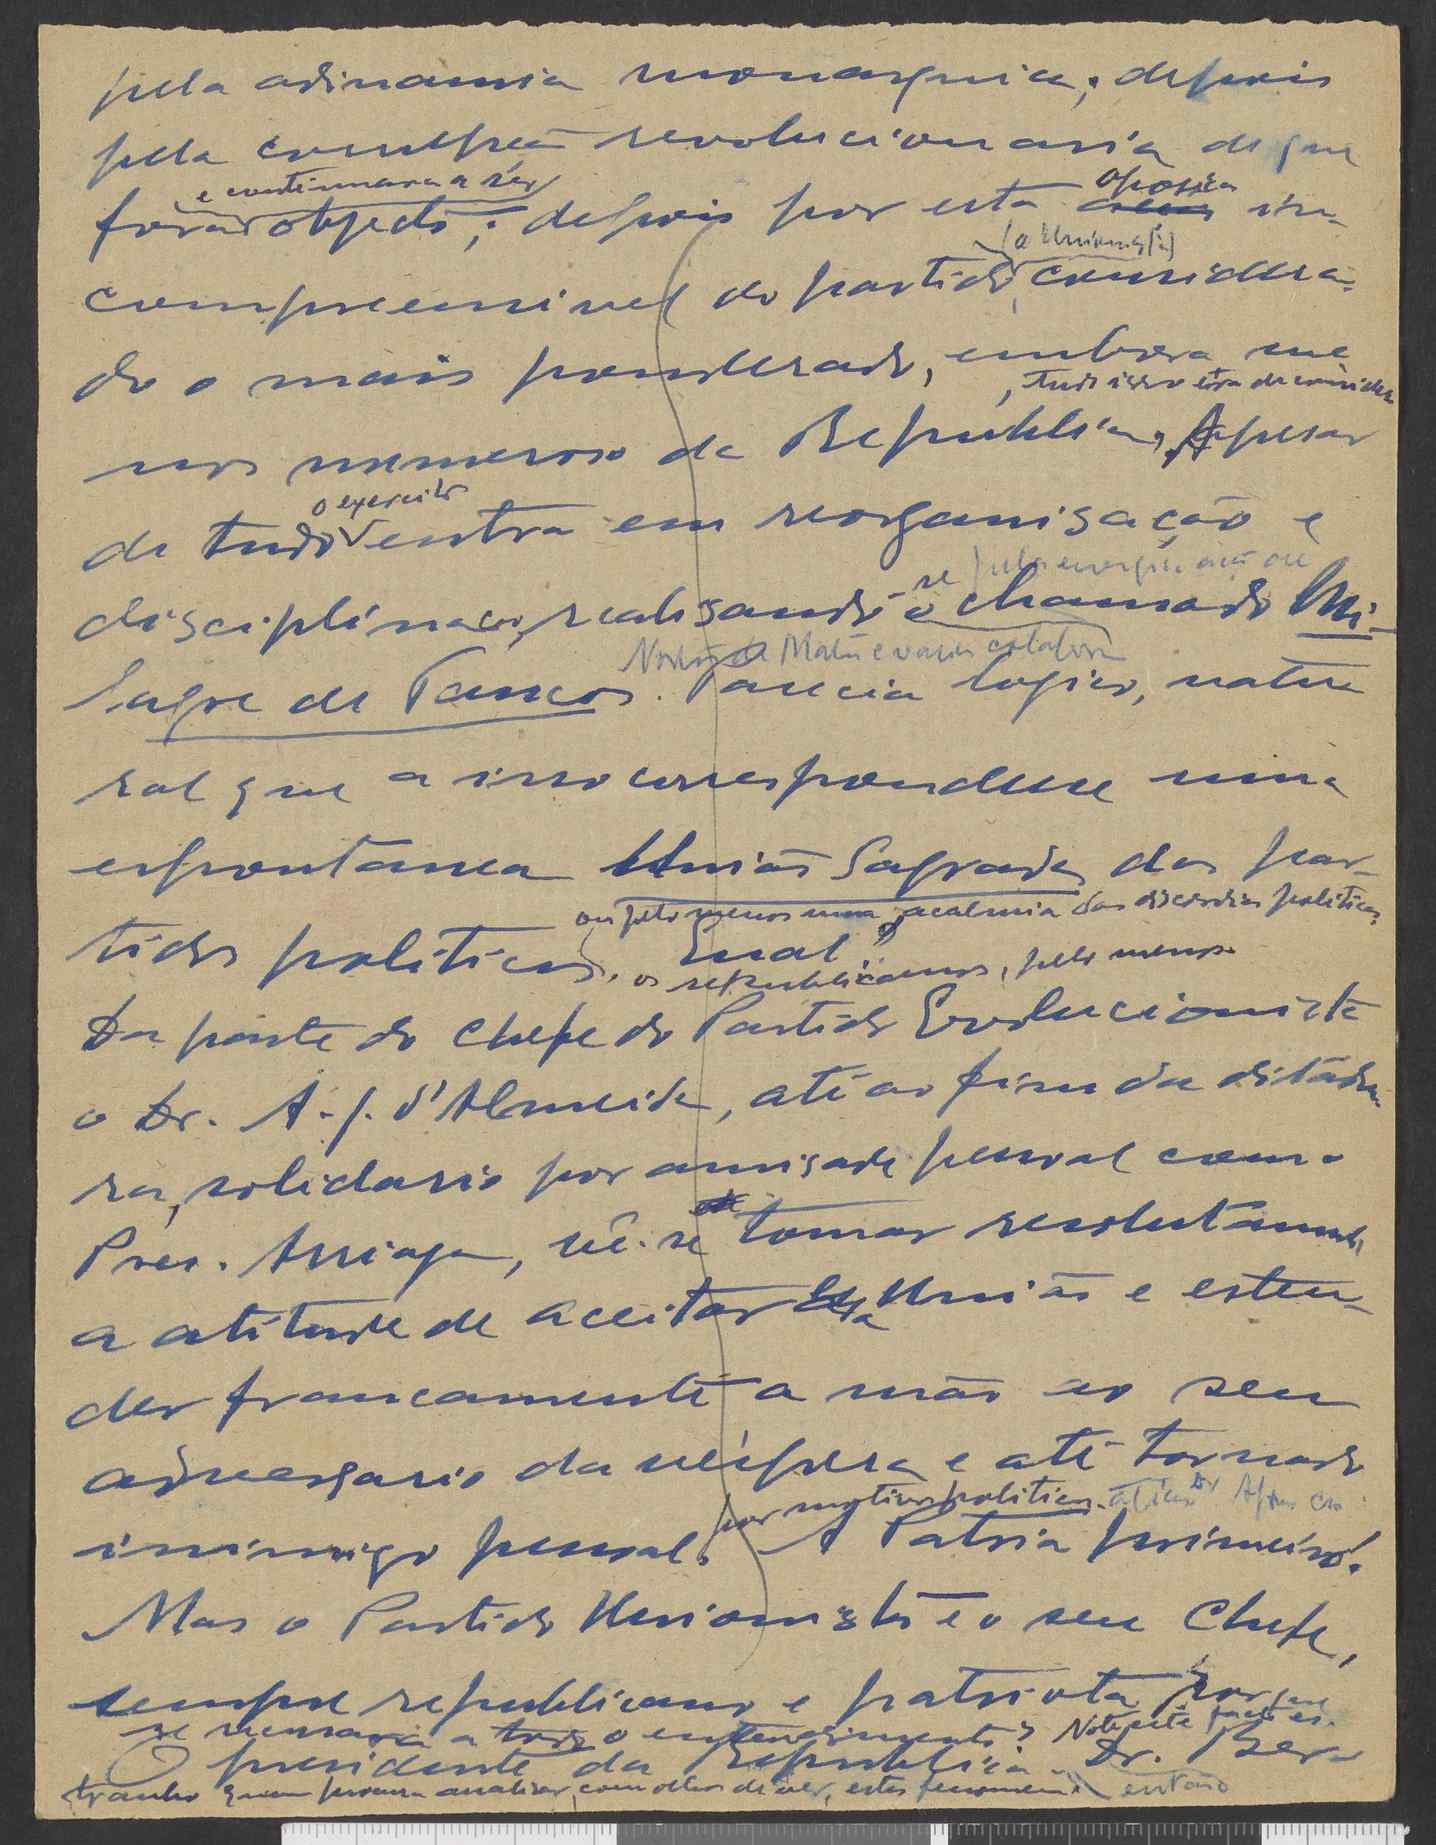 pela adinamia monarquica; depois
pela corrupção revolucionaria de que
e continuara a ser
foram objecto; depois por esta oposição in-
(a Unionista)
compreensivel do partido considera-
do o mais ponderado, embora me-
, tudo isso era de considerar
nos numeroso da Republica. Apesar
o exercito
de tudo entra em reorganisação e
se pela energica ação de
disciplina, realisando o chamado Mi-
Norton de Matos e varios colabora
lagre de Tancos. Parecia logico, natu-
ral que a isso correspondesse uma
espontanea União Sagrada dos par-
ou pelo menos uma acalmia das discordias politicas
tidos politicos. Qual
os republicanos, pelo menos
Da parte do Chefe do Partido Evolucionista
o Dr. A. J. d'Almeida, até ao fim da ditadu-
ra, solidario por amisade pessoal com o
Pres. Arriaga, vê-se tomar resolutamente
a atitude de aceitar essa União e esten-
der francamente a mão ao seu
adversario da vespera e até tornado
por motivos politicos. Dr Afonso
inimigo pessoal. A Patria primeiro!
Mas o Partido Unionista e o seu Chefe,
sempre republicano e patriota porque
se recusava a todo o entendimento? Note este facto es-
O presidente da Republica Dr. Ber-
tranho quem procura analisar, com olhos de ver, estes fenomenos então